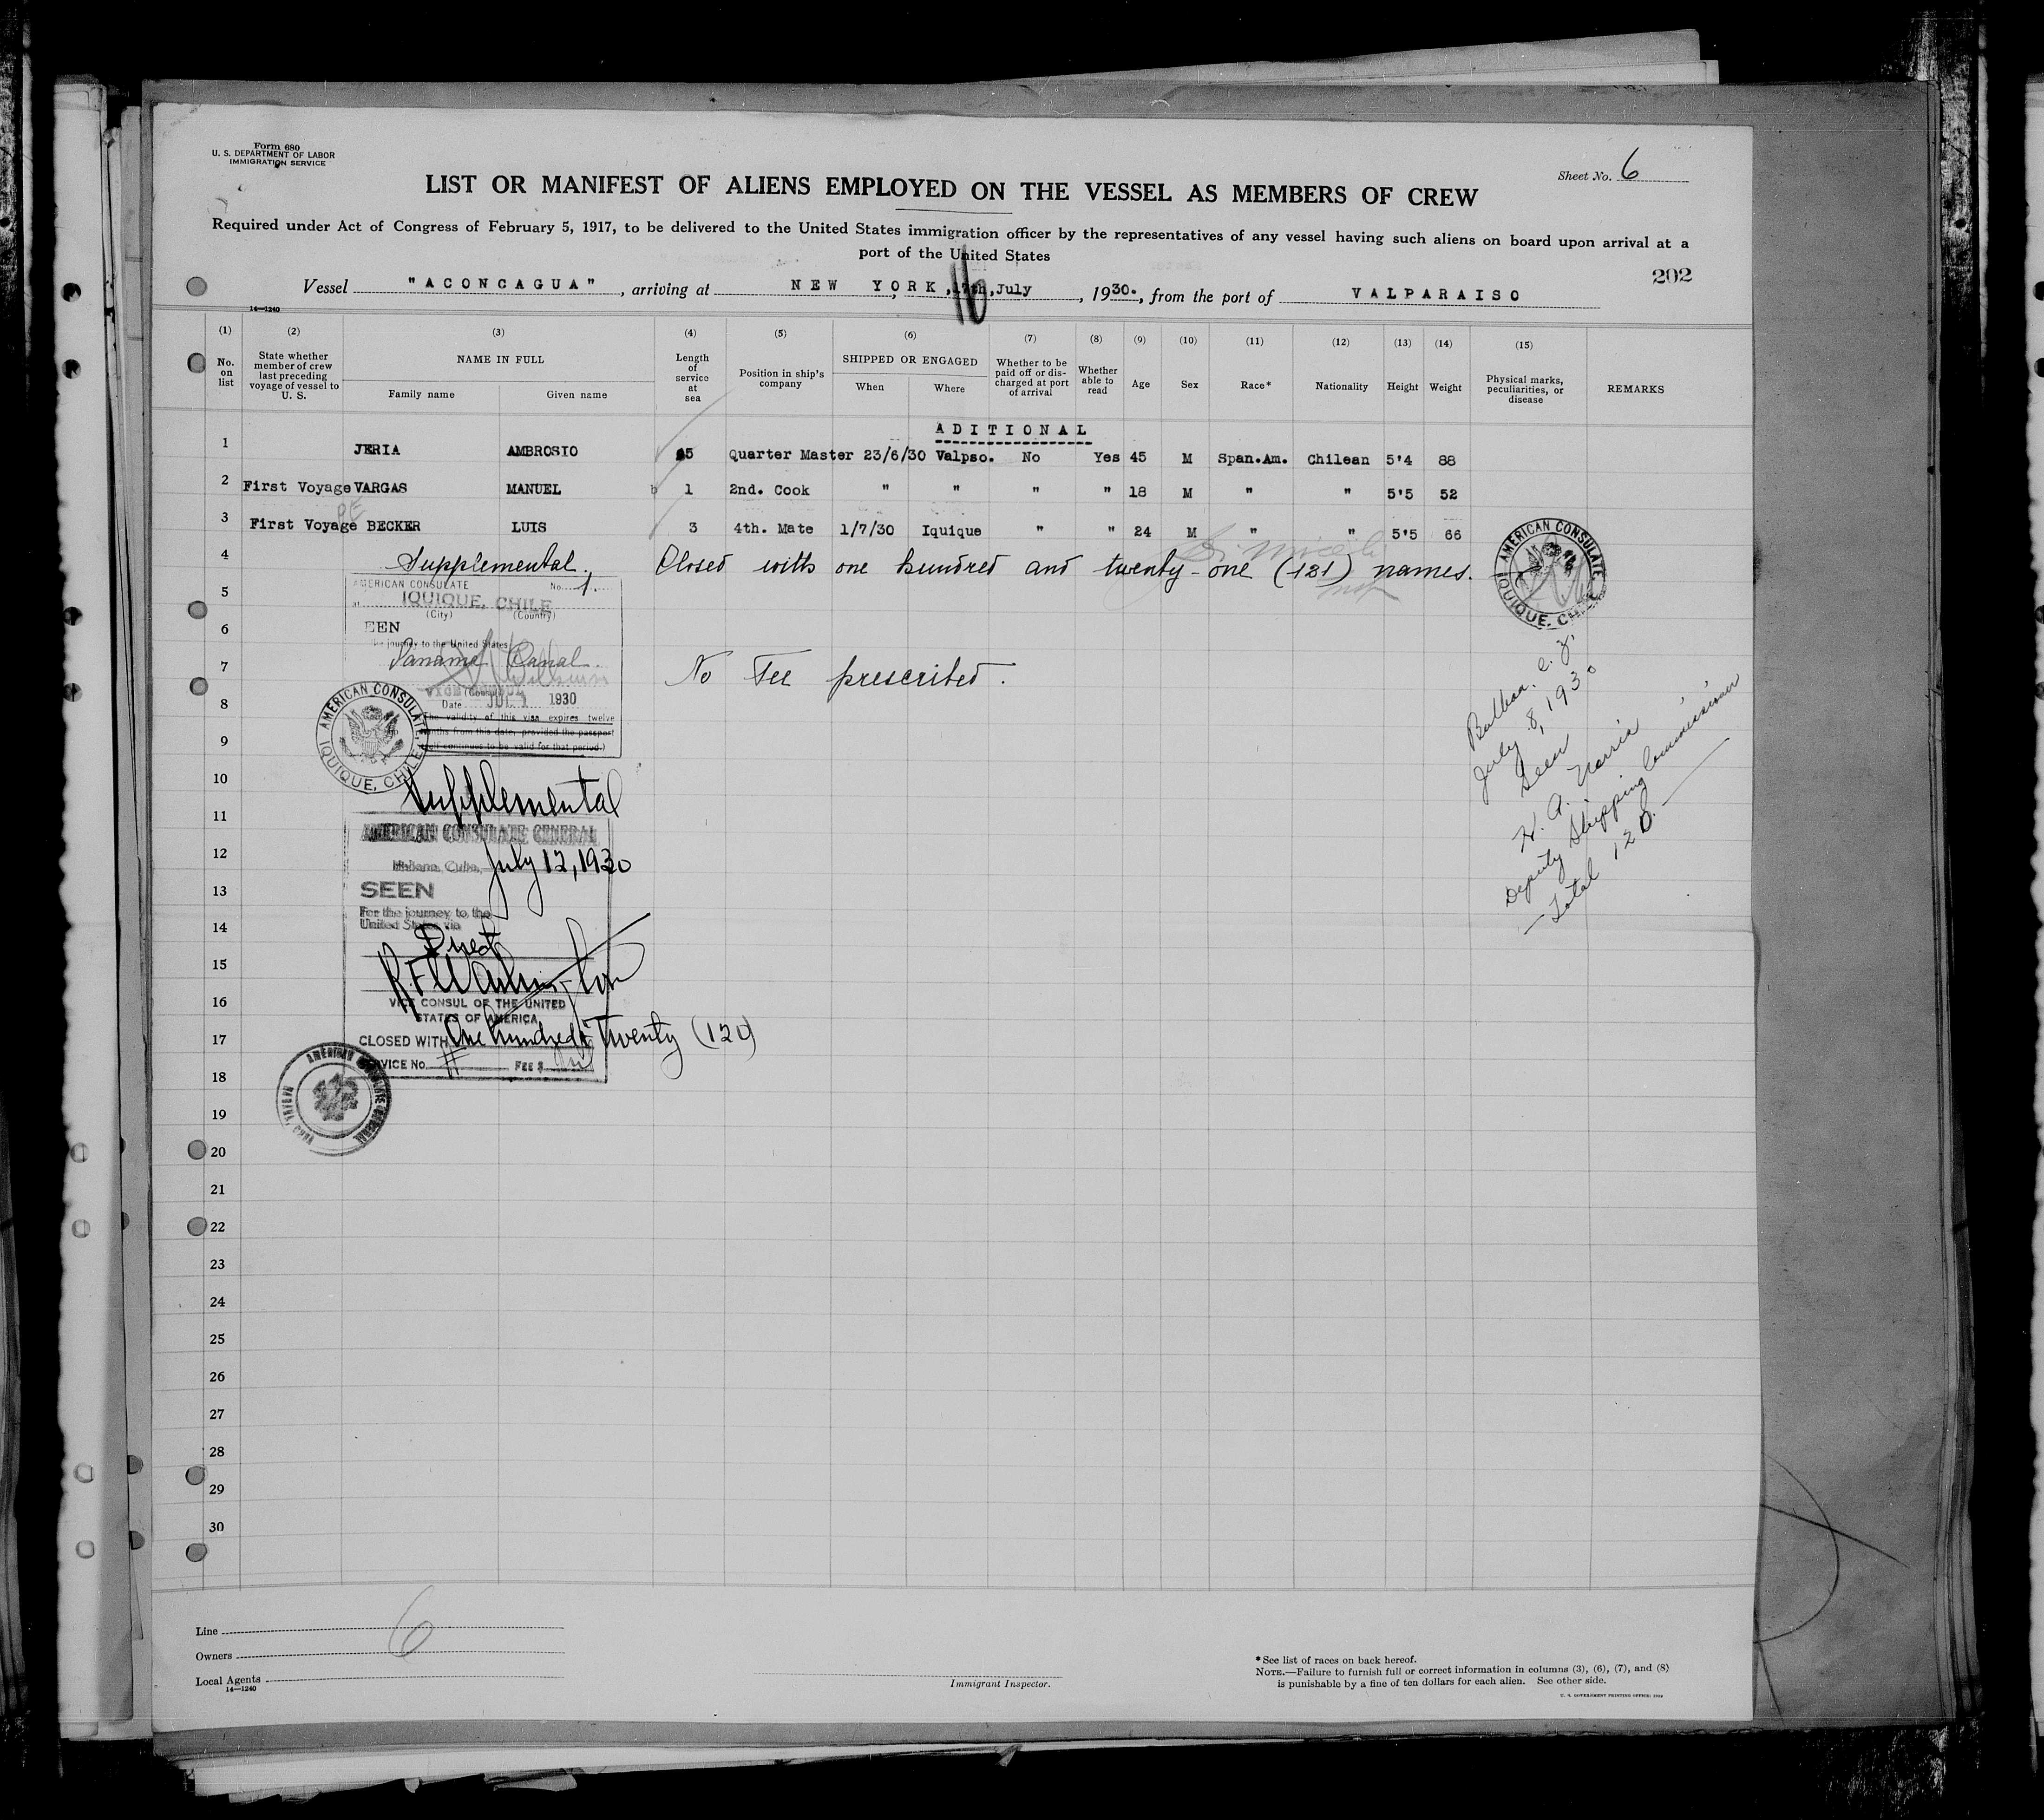 Form 680
U. S. DEPARTMENT OF LABOR
IMMIGRATION SERVICE
Sheet No. 6
LIST OR MANIFEST OF ALIENS EMPLOYED ON THE VESSEL AS MEMBERS OF CREW
Required under Act of Congress of February 5, 1917, to be delivered to the United States immigration officer by the representatives of any vessel having such aliens on board upon arrival at a
port of the United States
202
Vessel "ACONCAGUA", arriving at NEW YORK, 17th, July 16, 1930., from the port of VALPARAISO
14—1240
(1) (2) (3) (4) (5) (6) (7) (8) (9) (10) (11) (12) (13) (14) (15)
No. on list State whether member of crew last preceding voyage of vessel to U. S. NAME IN FULL Length of service at sea Position in ship's company SHIPPED OR ENGAGED Whether to be paid off or discharged at port of arrival Whether able to read Age Sex Race* Nationality Height Weight Physical marks, peculiarities, or disease REMARKS
Family name Given name When Where
ADITIONAL
1 JERIA AMBROSIO 15 Quarter Master 23/6/30 Valpso. No Yes 45 M Span.Am. Chilean 5'4 88
2 First Voyage VARGAS MANUEL 1 2nd. Cook " " " " 18 M " " 5'5 52
3 First Voyage BECKER LUIS 3 4th. Mate 1/7/30 Iquique " " 24 M " " 5'5 66
4 Supplemental. Closed with one hundred and twenty-one (121) names.
AMERICAN CONSULATE No. 1.
5
at IQUIQUE, CHILE
(City) (Country)
6
EEN
the journey to the United States
7
Panama Canal.
No Fee prescribed.
VICE (Consul)
8
Date JUL 1 1930
The validity of this visa expires twelve
9
months from this date, provided the passport
itself continues to be valid for that period.)
AMERICAN CONSULATE, IQUIQUE, CHILE
AMERICAN CONSULATE, IQUIQUE, CHILE
Balboa. C. Z.
July 8, 1930
Seen
Deputy Shipping Commissioner
Total 120.
10
Supplemental
11
AMERICAN CONSULATE GENERAL
12
Habana, Cuba, July 12, 1930
13
SEEN
For the journey to the
14
United States via
Direct
15
16
VICE CONSUL OF THE UNITED
STATES OF AMERICA
17
CLOSED WITH One hundred Twenty (120)
VICE No. FEE $ nil
18
AMERICAN CONSULATE GENERAL HAVANA, CUBA
19
20
21
22
23
24
25
26
27
28
29
30
6
Line
Owners
Local Agents
14—1240
Immigrant Inspector.
* See list of races on back hereof.
NOTE.—Failure to furnish full or correct information in columns (3), (6), (7), and (8)
is punishable by a fine of ten dollars for each alien. See other side.
U. S. GOVERNMENT PRINTING OFFICE: 1929